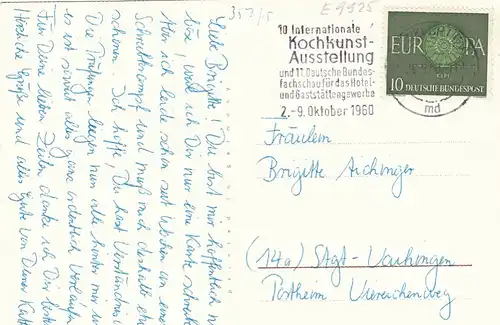 353/5
E 9525
10 Internationale
Kochkunst-
Ausstellung
und 11. Deutsche Bundes-
fachschau für das Hotel-
und Gaststättengewerbe
2.-9. Oktober 1960
EUROPA
CEPT
10 DEUTSCHE BUNDESPOST
md
Liebe Brigitte! Du bist mir hoffentlich n
böse, weil ich Dir nur eine Karte schrei
Aber ich leide schon seit Wochen an eine
und muß mich deshalb
schonen. Ich hoffe, Du hast Verständnis
Die Prüfungen liegen nun alle hinter mir u
es ist soweit alles ganz ordentlich verlaufe
Für Deine lieben Zeilen danke ich Dir bestens
Herzliche Grüße und alles Gute von Deiner
Fräulein
Brigitte Aichinger
(14a) Stgt-Vaihingen
Postheim